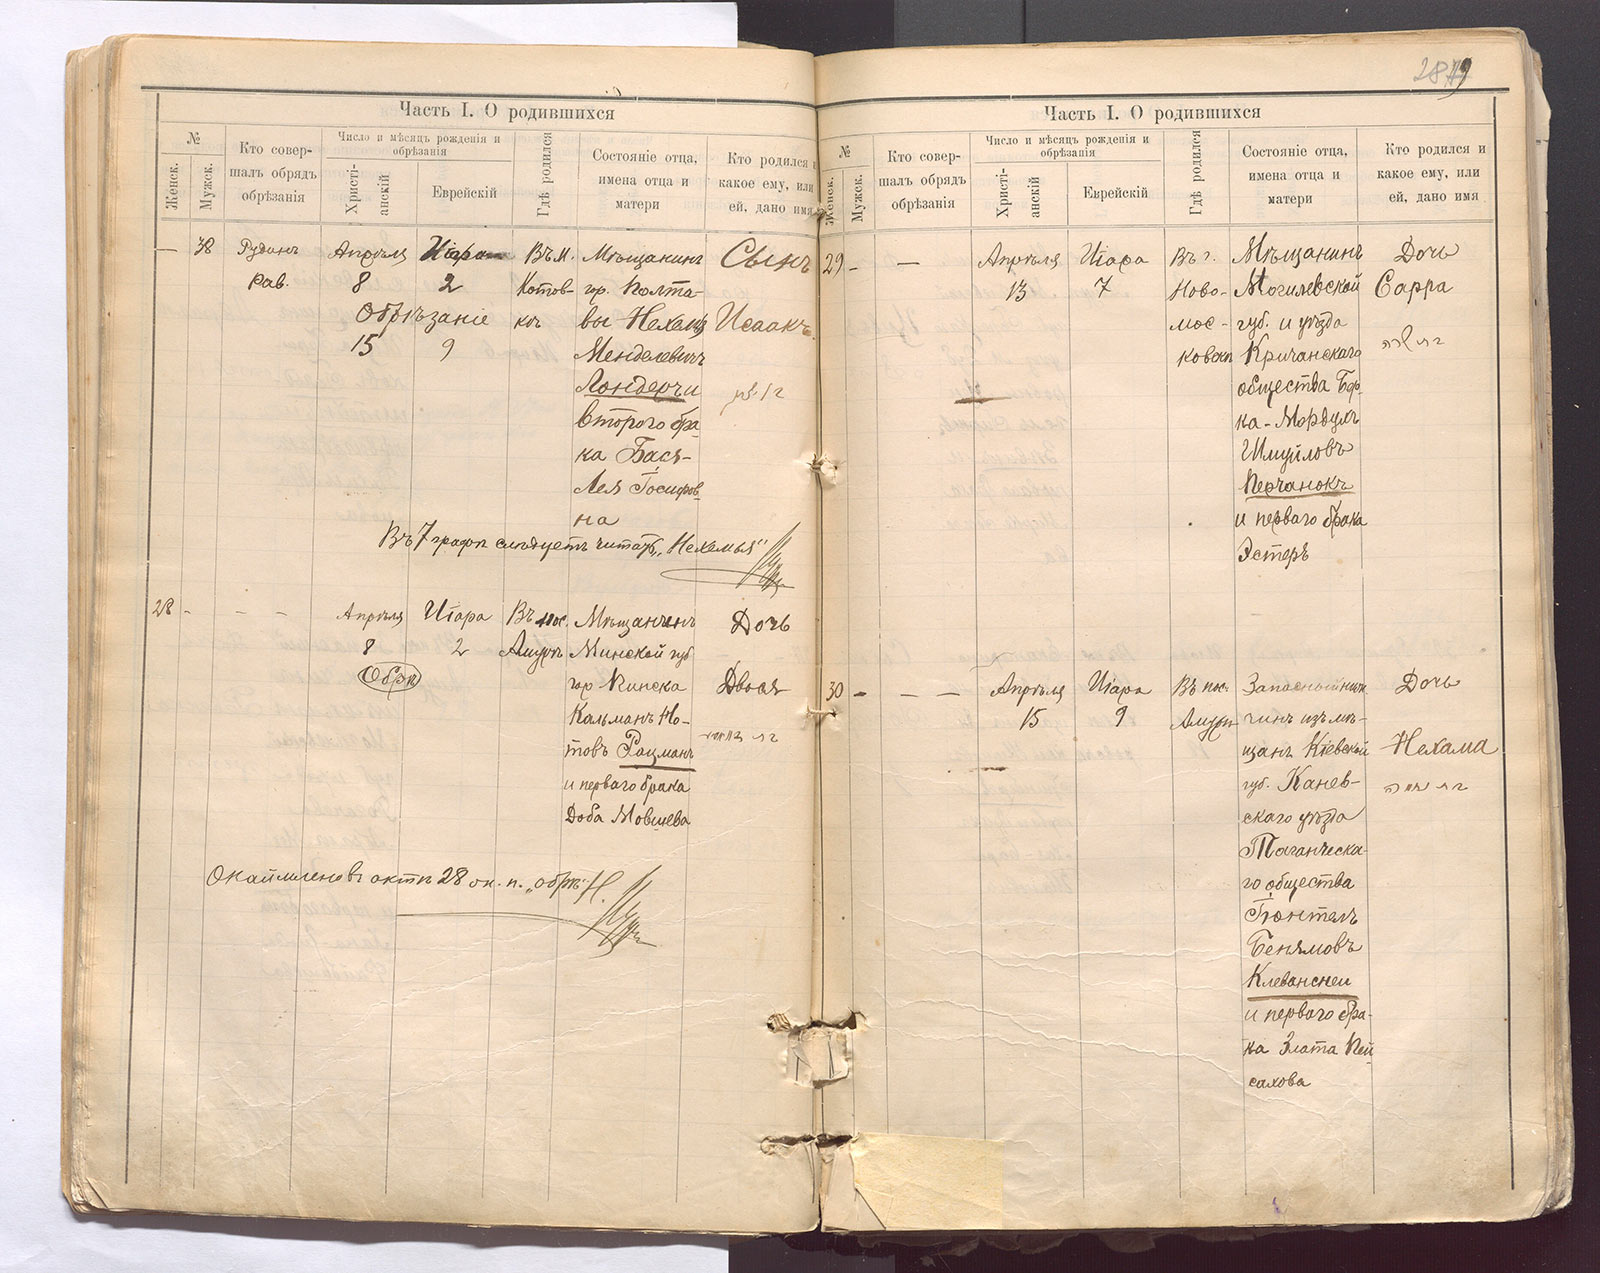 Часть I. О родившихся
№
Женск.
Мужск.
Кто совер-
шалъ обрядъ
обрѣзанія
Число и мѣсяцъ рожденія и
обрѣзанія
Христі-
анскій
Еврейскій
Гдѣ родился
Состояніе отца,
имена отца и
матери
Кто родился и
какое ему, или
ей, дано имя
— 38
Рудинъ
Рав.
Апрѣля
8
Обрѣзаніе
15
Иіара
2
9
Въ м.
Котов-
кѣ
Мѣщанинъ
гор. Полта-
вы Нехемія
Менделевичъ
Лондерчи
второго бра-
ка Бася-
Лея Іосифов-
на
Сынъ
Исаакъ
Въ 7 графѣ слѣдуетъ читать „Нехемья“
28 - - -
Апрѣля
8
Обрѣ
Иіара
2
Въ пос.
Амурѣ
Мѣщанинъ
Минской губ
гор Пинска
Кальманъ Но-
товъ Рацманъ
и перваго брака
Доба Мовшева
Дочь
Двося
Окаймленовъ актѣ 28 зн. п. „обрѣ“ Н.
28
Часть I. О родившихся
№
Женск.
Мужск.
Кто совер-
шалъ обрядъ
обрѣзанія
Число и мѣсяцъ рожденія и
обрѣзанія
Христі-
анскій
Еврейскій
Гдѣ родился
Состояніе отца,
имена отца и
матери
Кто родился и
какое ему, или
ей, дано имя
29 - —
Апрѣля
13
Иіара
7
Въ г.
Ново-
мос-
ковскѣ
Мѣщанинъ
Могилевской
губ. и уѣзда
Кричанскаго
общества Бер-
ка-Мордухъ
Шмуйловъ
Перчанокъ
и перваго брака
Эстеръ
Дочь
Сарра
30 - — —
Апрѣля
15
Иіара
9
Въ пос.
Амурѣ
Запасный ниж.
чинъ изъ мѣ-
щанъ Кіевской
губ. Канев-
скаго уѣзда
Таганческа-
го общества
Бенямовъ
Клеванскеи
и перваго бра-
ка Злата Пей
сахова
Дочь
Нехама